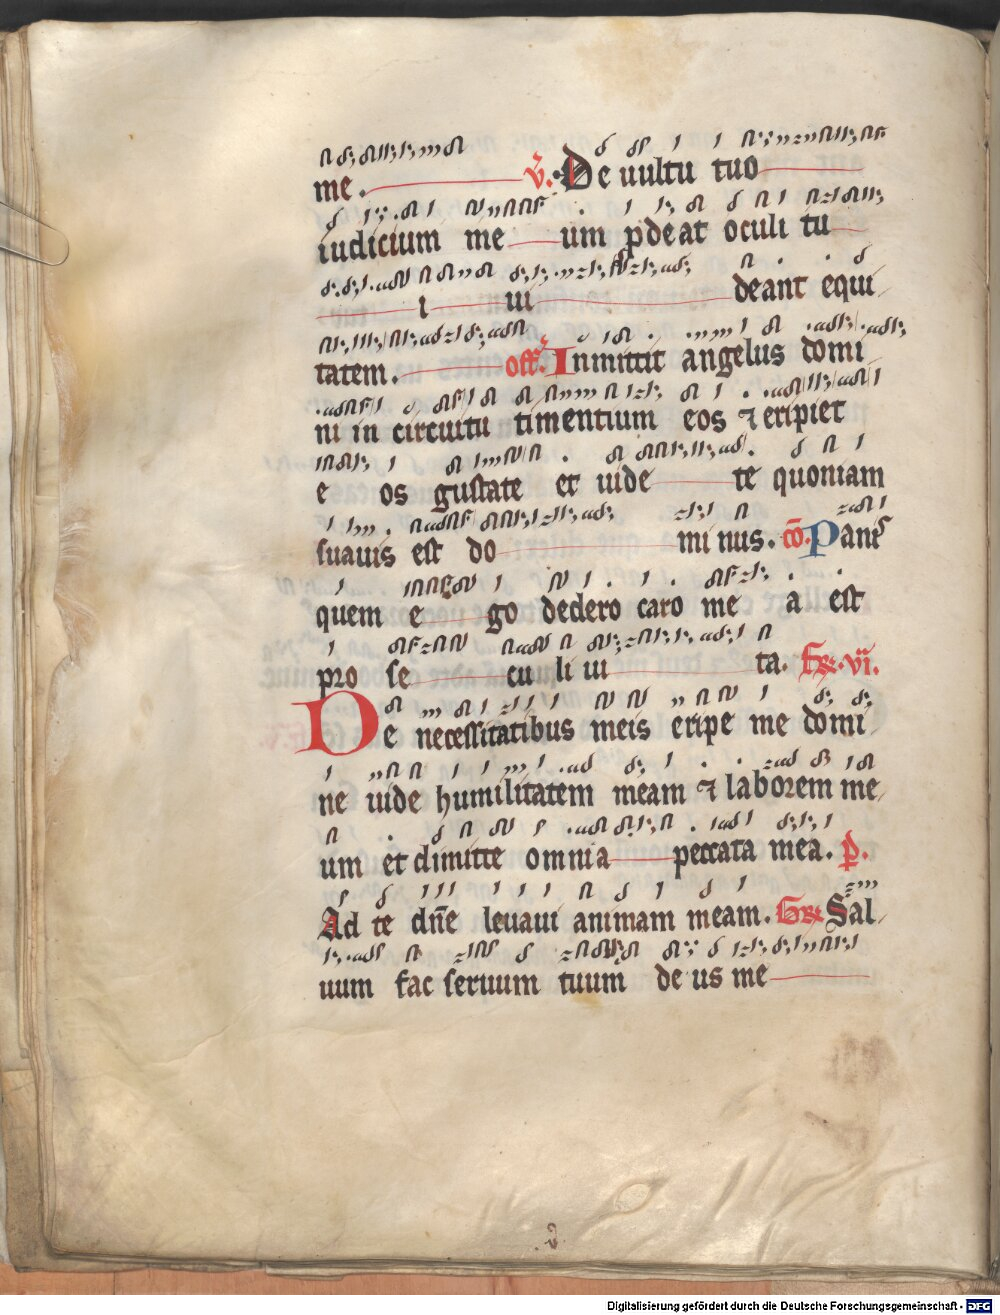 me. V̄. De uultu tuo
iudicium me um ꝓdeat oculi tu
i ui deant equi
tatem. off. Inmittit angelus domi
ni in circuitu timentium eos ⁊ eripiet
e os gustate et uide te quoniam
suauis est do mi nus. cō. Panis
quem e go dedero caro me a est
pro se cu li ui ta. F̄. vi.
De necessitatibus meis eripe me domi
ne uide humilitatem meam ⁊ laborem me
um et dimitte omnia peccata mea. p̄.
Ad te dn̄e leuaui animam meam. Gr Sal
uum fac seruum tuum de us me
Digitalisierung gefördert durch die Deutsche Forschungsgemeinschaft - DFG